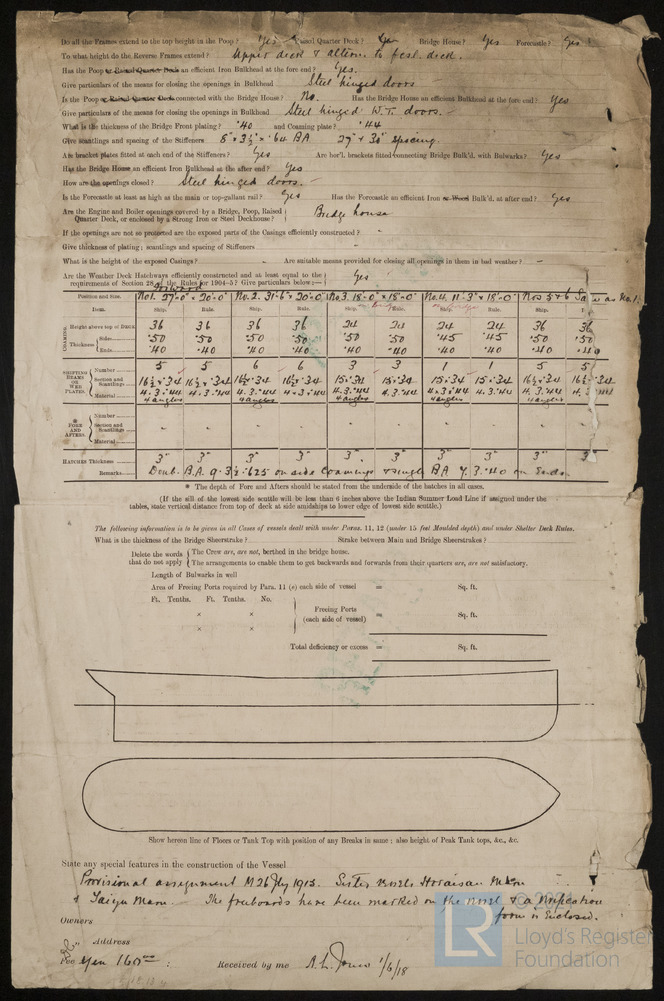 Do all the Frames extend to the top height in the Poop? Yes Raised Quarter Deck? Bridge House? Yes Forecastle? Yes
To what height do the Reverse Frames extend? Upper deck & altern. to fcsl. deck.
Has the Poop or Raised Quarter Deck an efficient Iron Bulkhead at the fore end? Yes.
Give particulars of the means for closing the openings in Bulkhead Steel hinged doors
Is the Poop or Raised Quarter Deck connected with the Bridge House? No. Has the Bridge House an efficient Bulkhead at the fore end? Yes
Give particulars of the means for closing the openings in Bulkhead Steel hinged W.T. doors.
What is the thickness of the Bridge Front plating? .40 and Coaming plate? .44
Give scantlings and spacing of the Stiffeners 8" × 3½" × .64 BA 27" & 30" spacing.
Are bracket plates fitted at each end of the Stiffeners? Yes Are hor'l. brackets fitted connecting Bridge Bulk'd. with Bulwarks? Yes
Has the Bridge House an efficient Iron Bulkhead at the after end? Yes
How are the openings closed? Steel hinged doors.
Is the Forecastle at least as high as the main or top-gallant rail? Yes Has the Forecastle an efficient Iron or Wood Bulk'd. at after end? Yes
Are the Engine and Boiler openings covered by a Bridge, Poop, Raised Quarter Deck, or enclosed by a Strong Iron or Steel Deckhouse? Bridge house
If the openings are not so protected are the exposed parts of the Casings efficiently constructed? -
Give thickness of plating; scantlings and spacing of Stiffeners
What is the height of the exposed Casings? - Are suitable means provided for closing all openings in them in bad weather? -
Are the Weather Deck Hatchways efficiently constructed and at least equal to the
requirements of Section 28 of the Rules for 1904-5? Give particulars below:— Yes
Forward
Position and Size. No 1. 27'-0" × 20'-0" No. 2. 31'-6" × 20'-0" No 3. 18'-0" × 18'-0" No. 4. 11'-3" × 18'-0" Nos 5 & 6 Same as No. 1.
Item. Ship. Rule. Ship. Rule. Ship. Rule. Ship. Rule. Ship.
COAMING.
Height above top of DECK 36 36 36 36 24 24 24 24 36 36
Thickness Sides .50 .50 .50 .50 .50 .50 .45 .45 .50 .50
Ends .40 .40 .40 .40 .40 .40 .40 .40 .40 .40
SHIFTING BEAMS OR WEB PLATES.
Number 5 5 6 6 3 3 1 1 5 5
Section and Scantlings 16½ × .34 16½ × .34 16½ × .34 16½ × .34 15 × .34 15 × .34 15 × .34 15 × .34 16½ × .34 16½ × .34
Material 4.3.44 4.3.44 4.3.44 4.3.44 4.3.44 4.3.44 4.3.44 4.3.44 4.3.44 4.3.44
4 angles 4 angles 4 angles 4 angles 4 angles
* FORE AND AFTERS.
Number
Section and Scantlings - - - - - - - - - -
Material
HATCHES Thickness 3" 3" 3" 3" 3" 3" 3" 3" 3" 3"
Remarks Doub. B.A. 9 . 3½ . .625 on side Coamings & single BA 7. 3. .40 on Ends.
* The depth of Fore and Afters should be stated from the underside of the hatches in all cases.
(If the sill of the lowest side scuttle will be less than 6 inches above the Indian Summer Load Line if assigned under the
tables, state vertical distance from top of deck at side amidships to lower edge of lowest side scuttle.)
The following information is to be given in all Cases of vessels dealt with under Paras. 11, 12 (under 15 feet Moulded depth) and under Shelter Deck Rules.
What is the thickness of the Bridge Sheerstrake? Strake between Main and Bridge Sheerstrakes?
Delete the words that do not apply
The Crew are, are not, berthed in the bridge house.
The arrangements to enable them to get backwards and forwards from their quarters are, are not satisfactory.
Length of Bulwarks in well
Area of Freeing Ports required by Para. 11 (e) each side of vessel = Sq. ft.
Ft. Tenths. Ft. Tenths. No.
×
×
Freeing Ports (each side of vessel) = Sq. ft.
Total deficiency or excess = Sq. ft.
Show hereon line of Floors or Tank Top with position of any Breaks in same; also height of Peak Tank tops, &c., &c.
State any special features in the construction of the Vessel
Provisional assignment M 26 Jly 1915. Sister vessels Horaisan Maru
& Taigu Maru. The freeboards have been marked on the vessel & a Notification
form is Enclosed.
Owners
Address
Fee Yen 160 : Received by me A. L. Jones 1/6/18
© 2021
LR
Lloyd's Register
Foundation